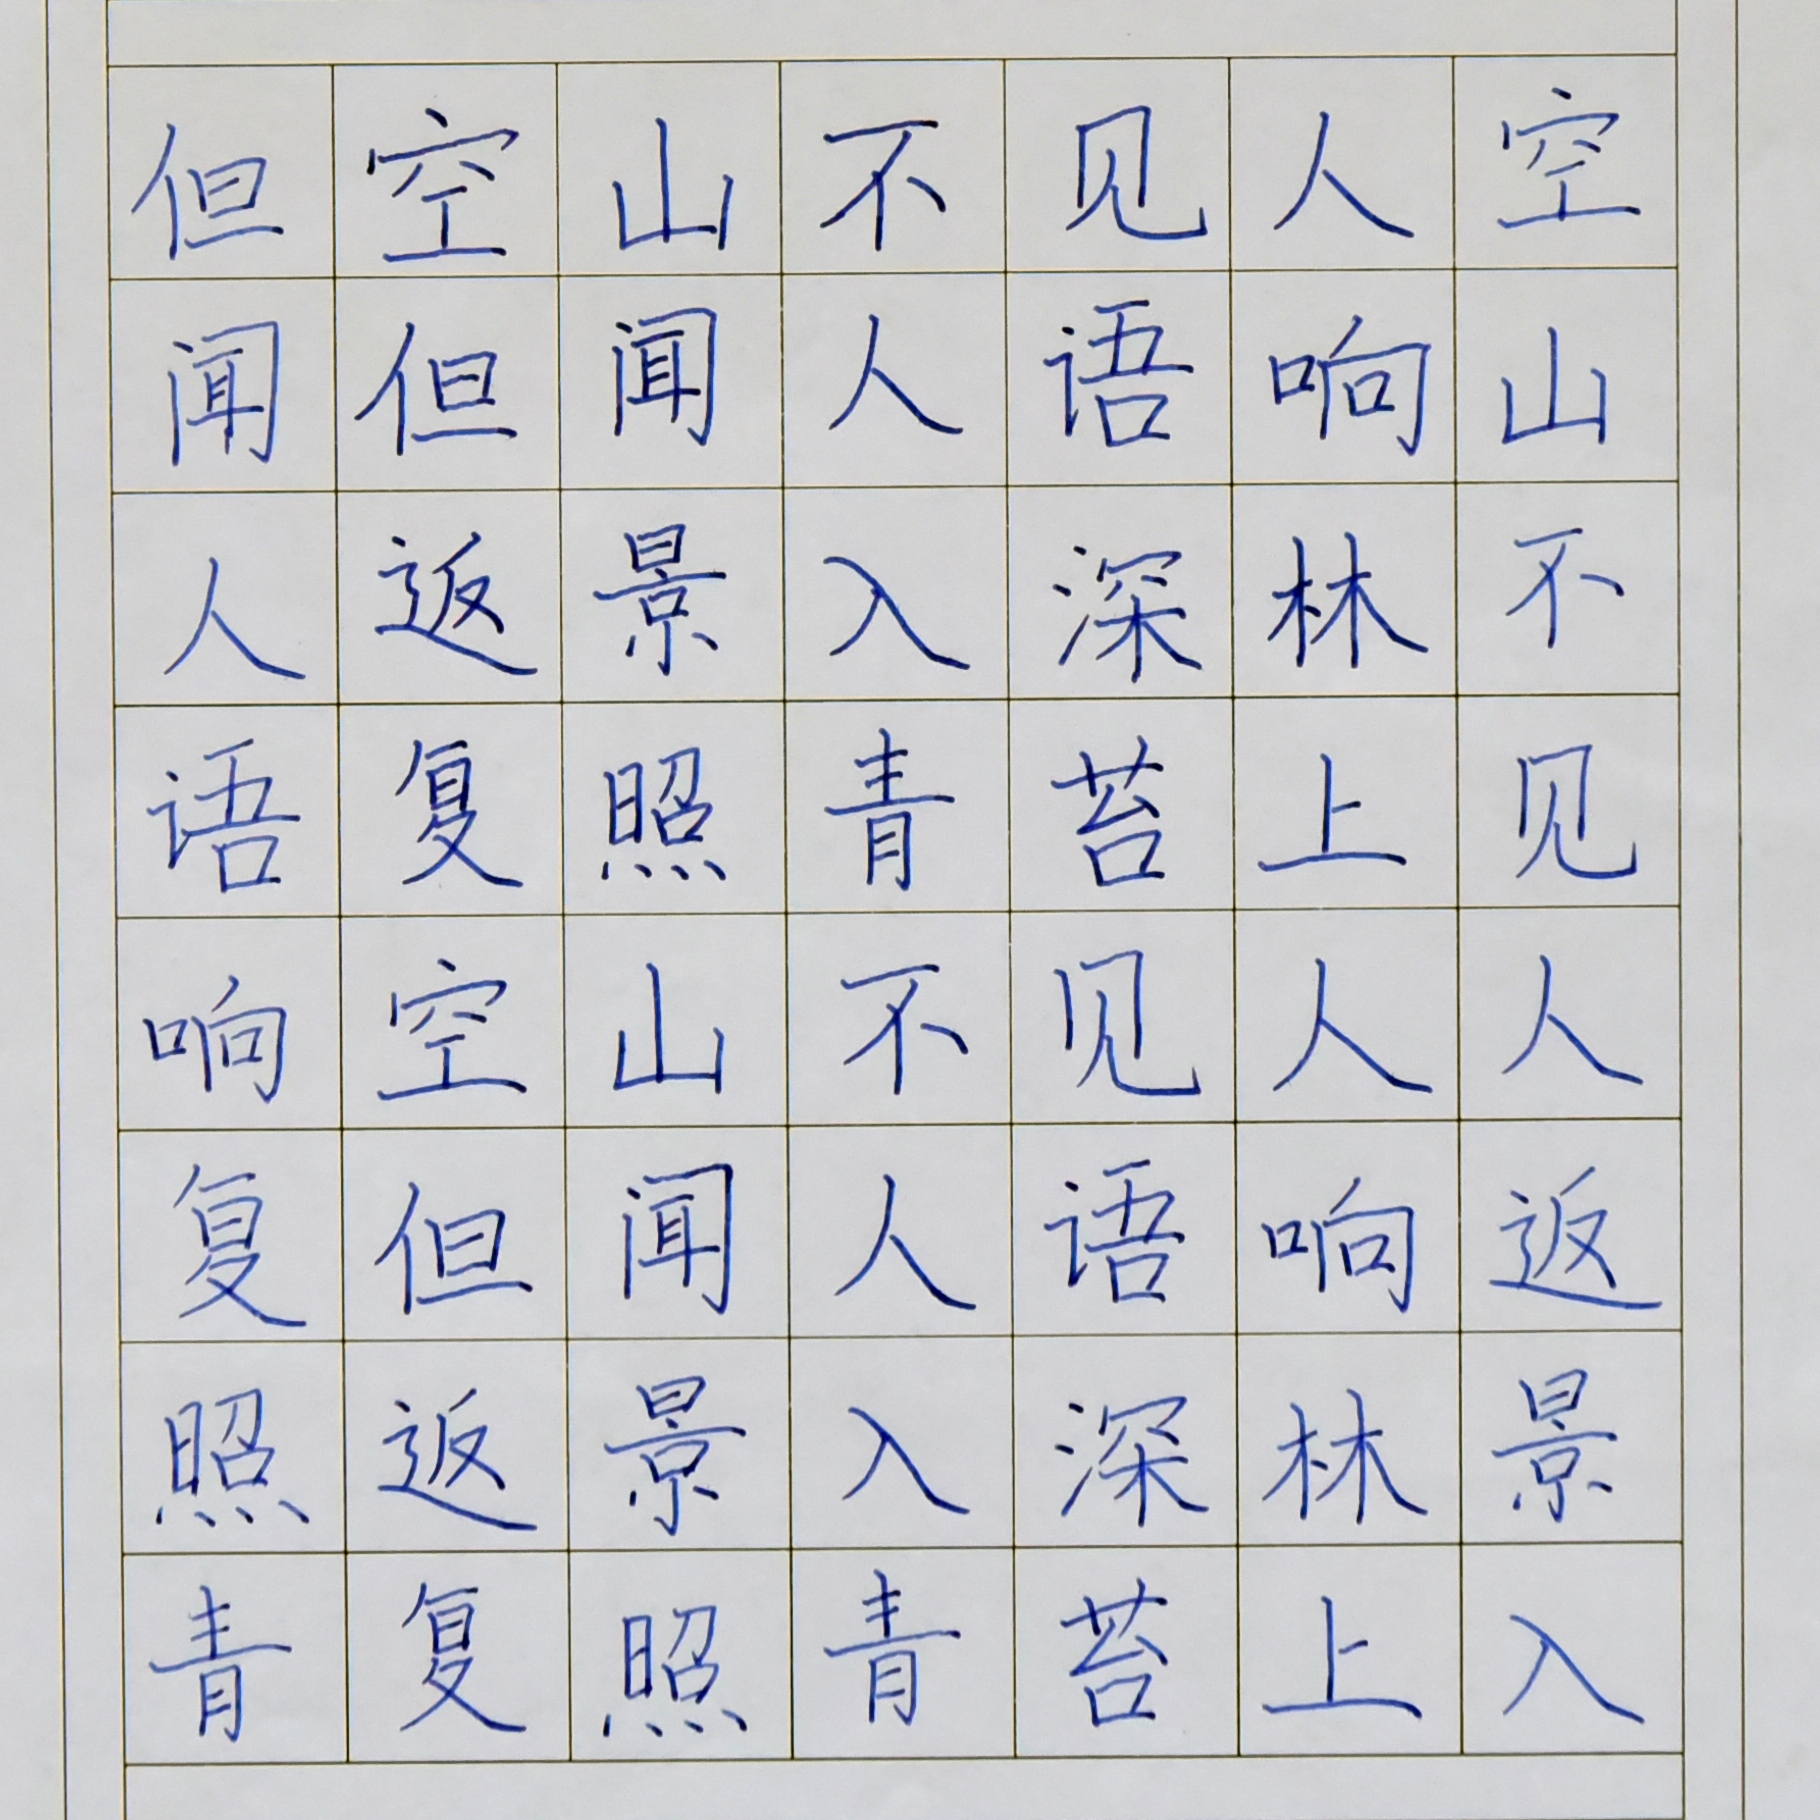 但空山不见人空
闻但闻人语响山
人返景入深林不
语复照青苔上见
响空山不见人人
复但闻人语响返
照返景入深林景
青复照青苔上入